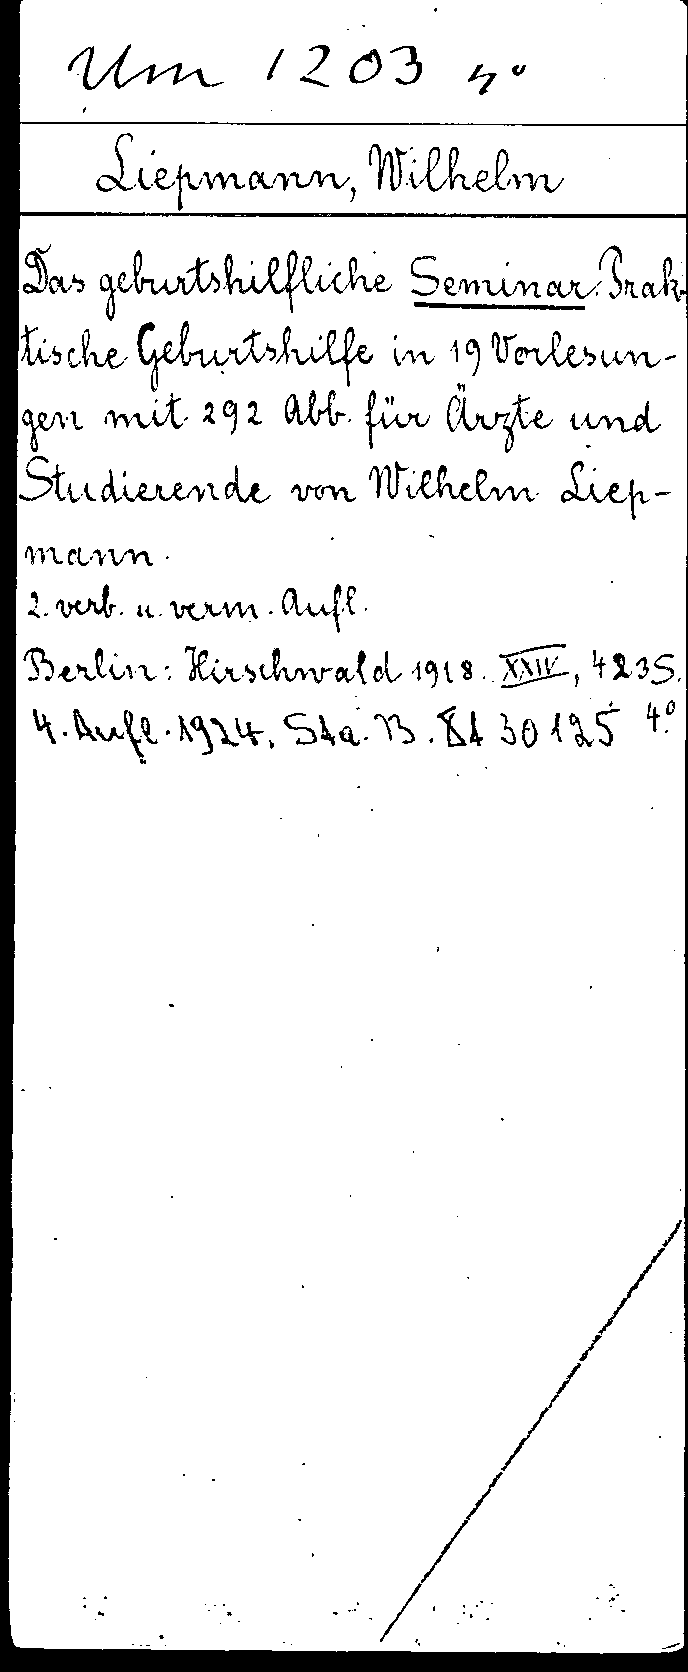 Um 1203 4°
Liepmann, Wilhelm
Das geburtshilfliche Seminar. Prak-
tische Geburtshilfe in 19 Vorlesun-
gen mit 292 Abb. für Ärzte und
Studierende von Wilhelm Liep-
mann.
2. verb. u. verm. Aufl.
Berlin: Hirschwald 1918. XXIV, 423 S.
4. Aufl. 1924. Sta. B. 30 125 4°